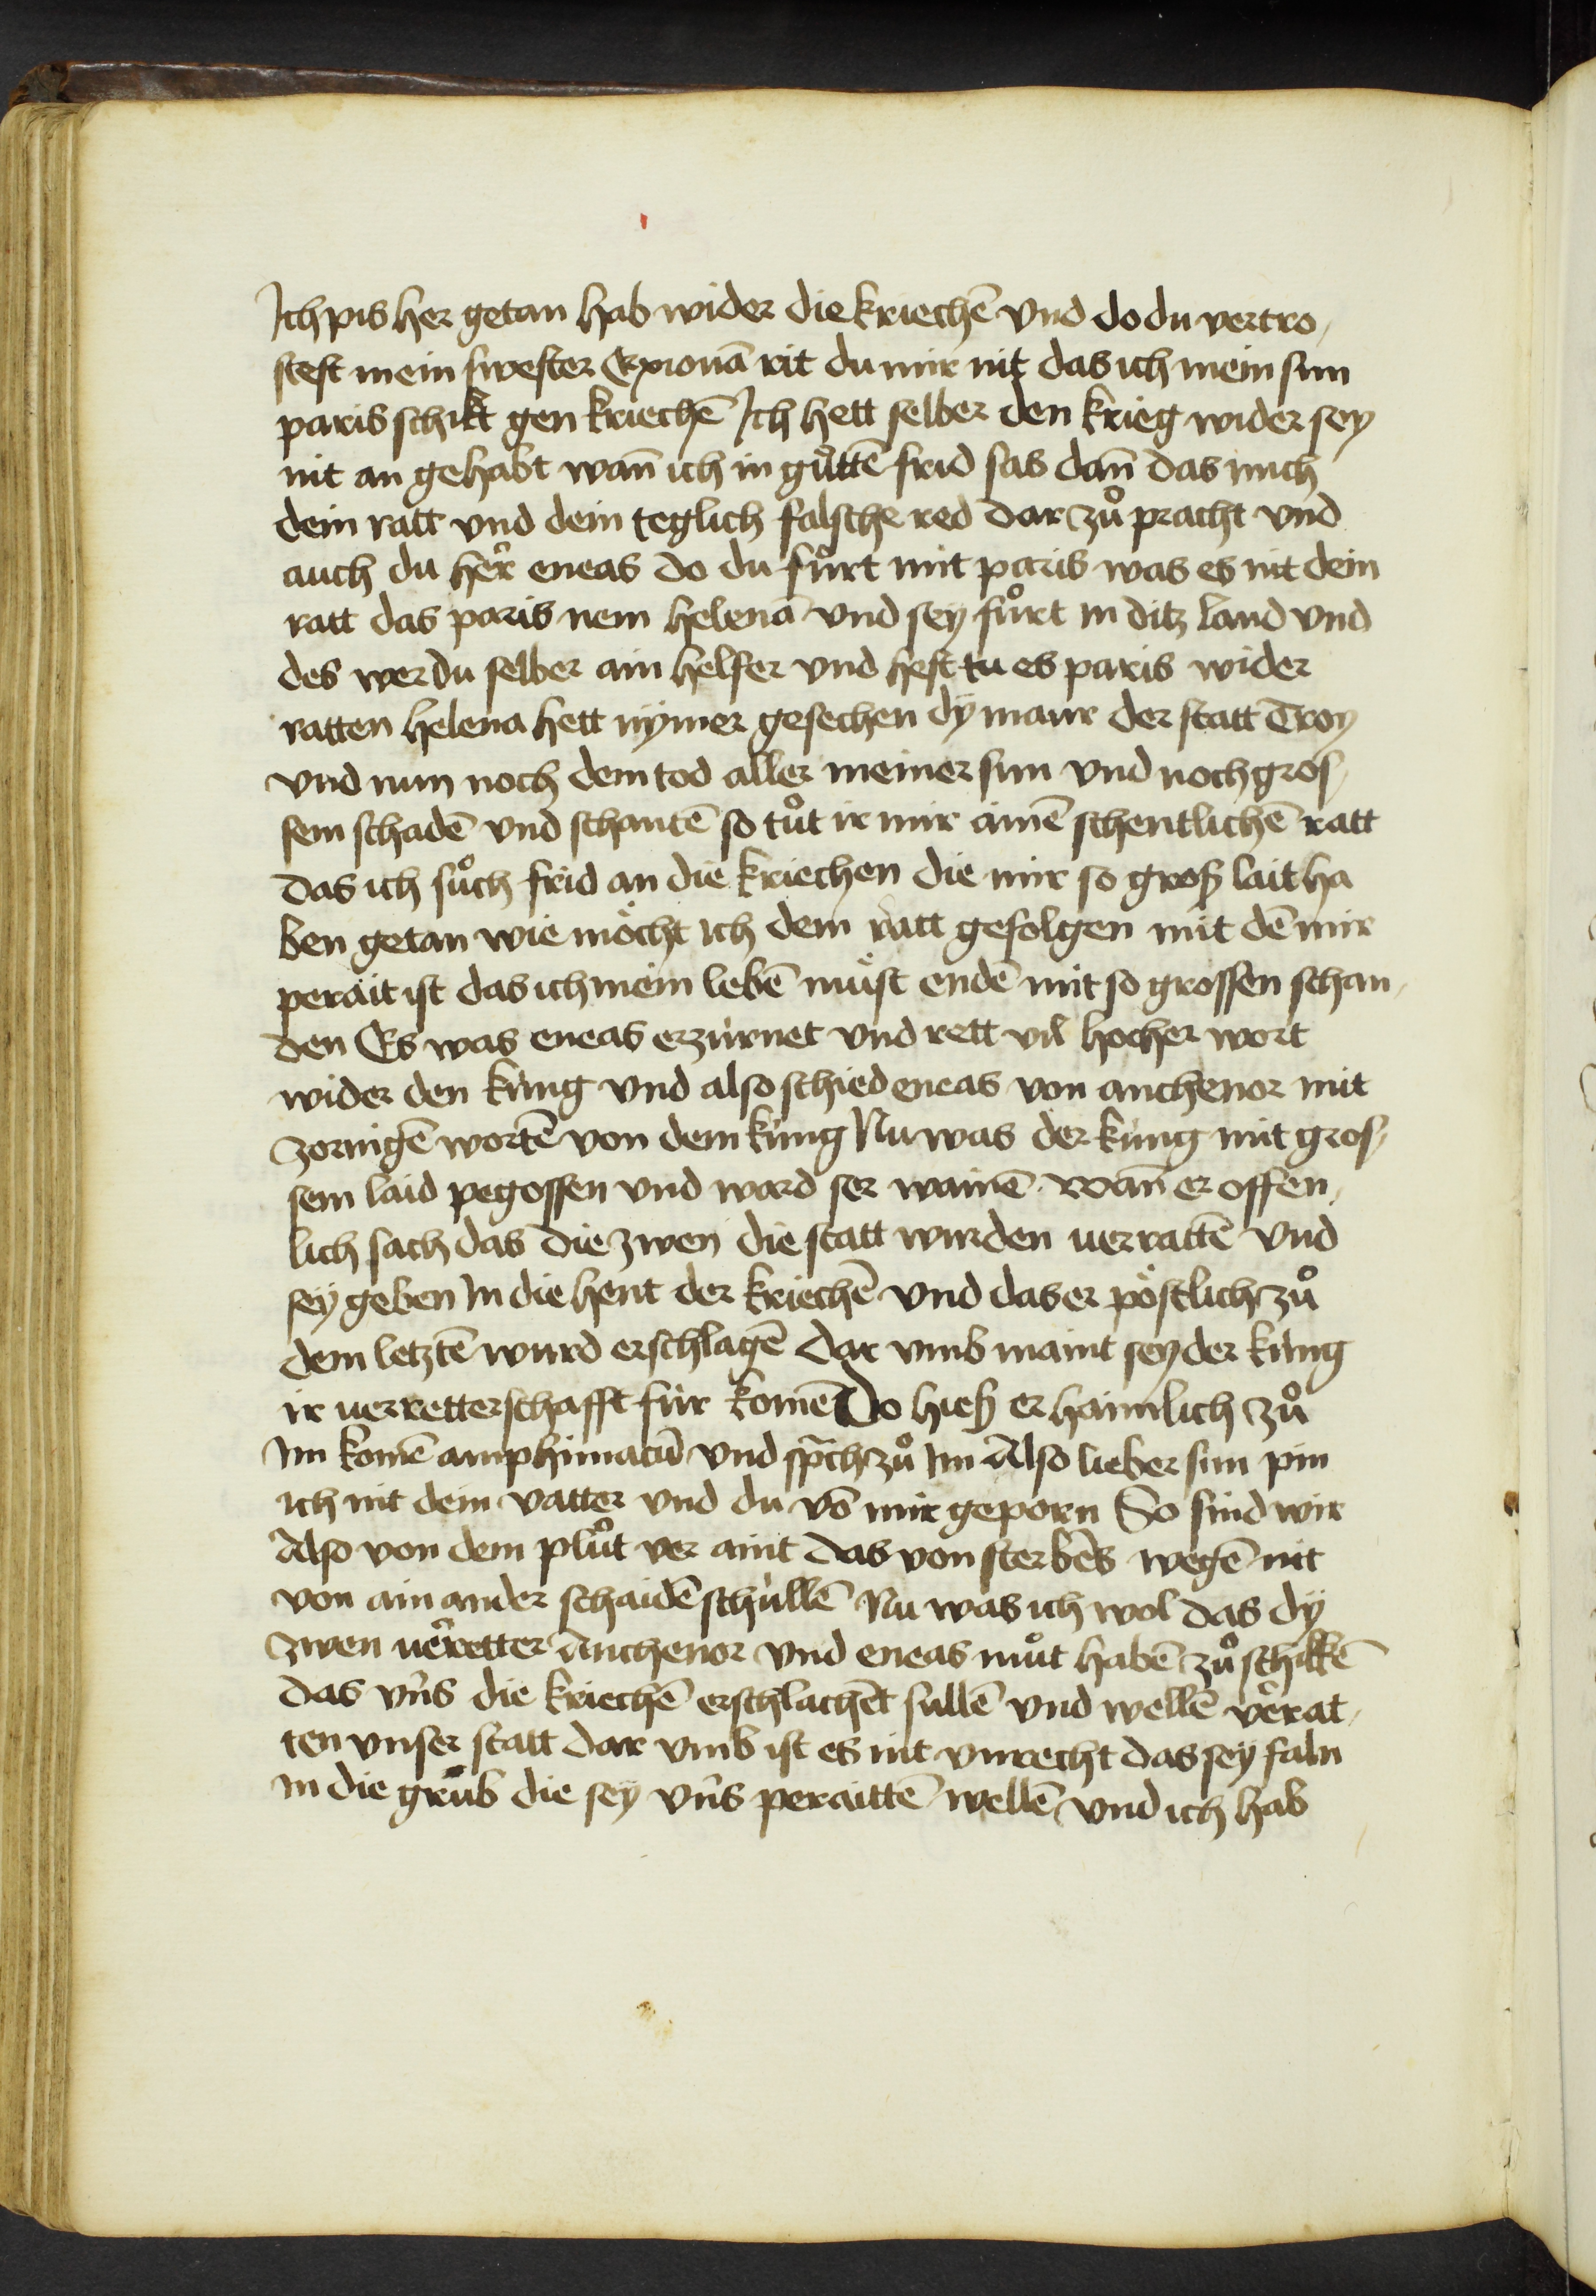 Ich pis her getan hab wider die kriechē vnd do du vertro,
stest mein swester Exionā rit du mir nit das ich mein sun
paris schikt gen kriechē Ich hett selber den krieg wider sey
nit an gehabt wan̄ ich in gůttē frid sas dan̄ das mich
dein ratt vnd dein teglich falsche red dar zů pracht vnd
auch du her̄ eneas do du fůrt mit paris was es nit dein
ratt das paris nem helenā vnd sey fůrt in ditz land vnd
des wer du selber ain helfer vnd hest tu es paris wider
ratten helena hett nÿmer gesechen dÿ maur der statt Troy
vnd nun noch dem tod aller meiner sun vnd noch gros,
sem schadē vnd schantē so tůt ir mir ainē schentlichē ratt
das ich sůch frid an die kriechen die mir so groß lait ha
ben getan wie möcht ich dem ratt gefolgen mit dē mir
perait ist das ich mein lebē müst endē mit so grossen schan,
den Es was eneas erzürnet vnd rett vil hocher wort
wider den küng vnd also schied eneas von anchenor mit
zornigē wortē von dem küng Nu was der küng mit gros,
sem laid pegossen vnd ward ser wainē. wan̄ er offen,
lich sach das die zwen die statt wurden uerrattē vnd
sey geben In die hent der kriechē vnd das er pöstlich zů
dem letztē wurd erschlagē dar vmb maint sey der küng
ir uerretterschafft für komē Do hieß er haimlich zů
Im komē amphimacū vnd sprach zů Im Also lieber sun pin
ich nit dein vatter vnd du vō mir geporn So sind wir
Also von dem plůt ver aint das von sterbēs wegē nit
von ain ander schaidē schüllē Nu was ich wol das dÿ
zwen uer̄retter Anchenor vnd eneas můt habē zů schikkē
das vn̄s die kriechē erschlachēt sullē vnd wellē ver̄rat,
ten vnser statt dar vmb ist es nit vnrecht das sey faln
In die grůb die sey vn̄s peraittē wellē vnd ich hab